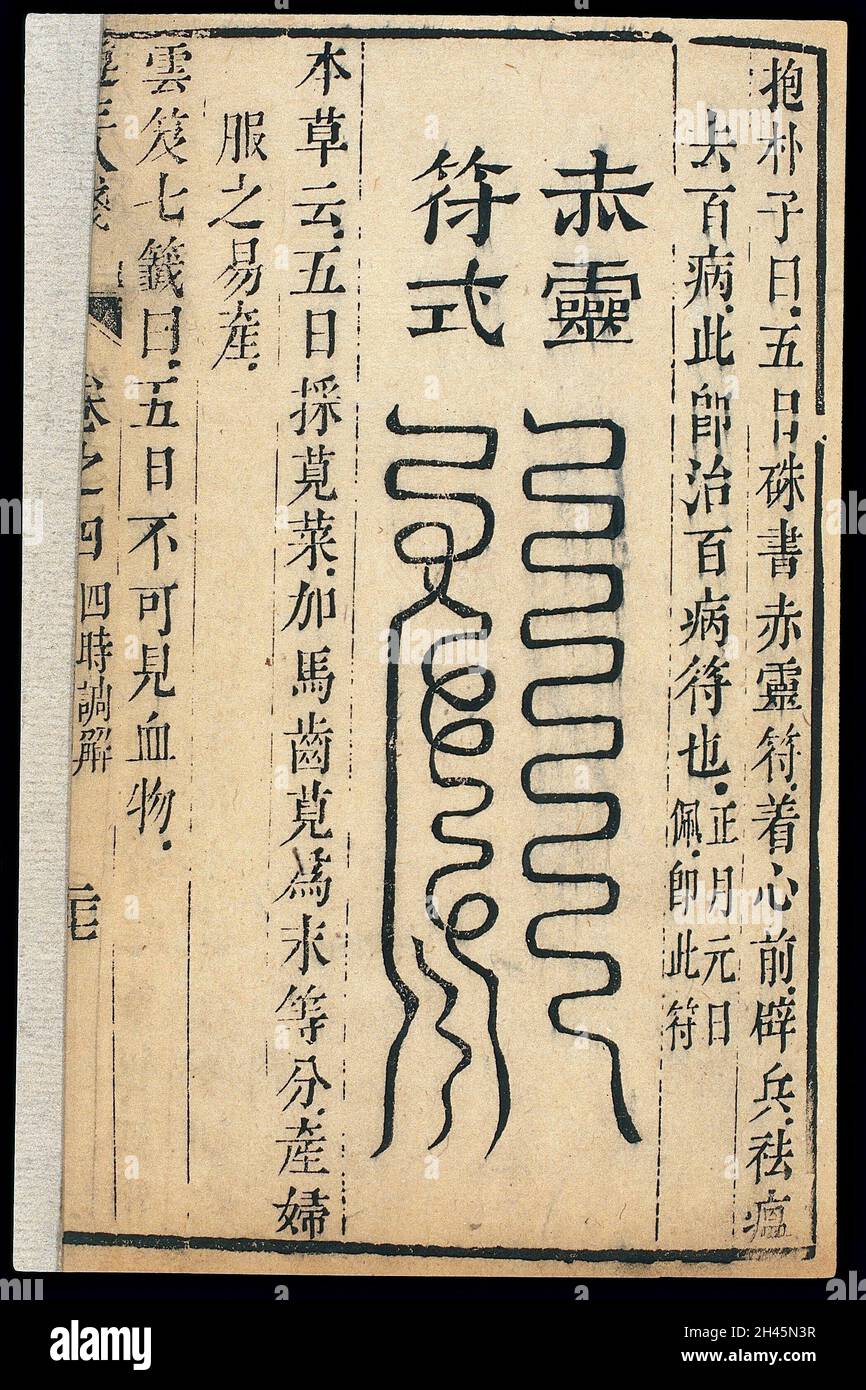 抱朴子曰五日硃書赤靈符着心前辟兵祛瘟
去百病此即治百病符也正月元日
佩即此符
赤靈
符式
本草云五日採莧菜加馬齒莧為末等分產婦
服之易產
雲笈七籤曰五日不可見血物
卷之四 四時調解
alamy
Image ID: 2H45N3R
www.alamy.com